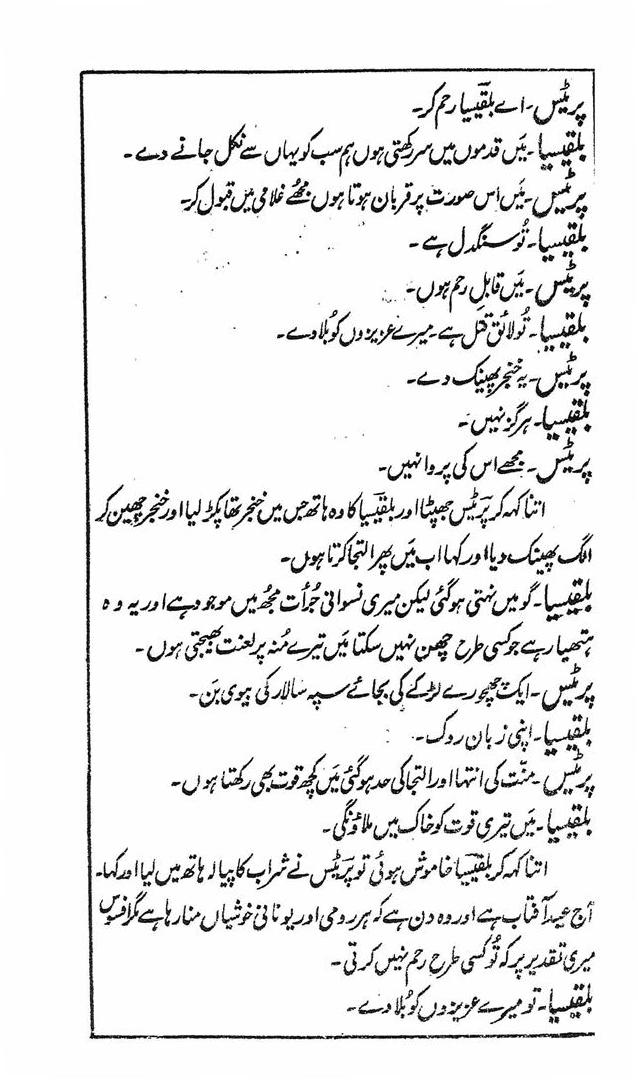 پریٹس۔ اے بلقیسیا رحم کر۔
بلقیسیا۔ میں قدموں میں سر رکھتی ہوں ہم سب کو یہاں سے نکل جانے دے۔
پریٹس۔ میں اس صورت پر قربان ہوتا ہوں مجھے غلامی میں قبول کر۔
بلقیسیا۔ تُو سنگدل ہے۔
پریٹس۔ میں قابلِ رحم ہوں۔
بلقیسیا۔ تُو لائق قتل ہے۔ میرے عزیزوں کو بُلا دے۔
پریٹس۔ یہ خنجر پھینک دے۔
بلقیسیا۔ ہرگز نہیں۔
پریٹس۔ مجھے اس کی پروا نہیں۔
اتنا کہہ کر پریٹس جھپٹا اور بلقیسیا کا وہ ہاتھ جس میں خنجر تھا پکڑ لیا اور خنجر چھین کر
الگ پھینک دیا اور کہا اب میں پھر التجا کرتا ہوں۔
بلقیسیا۔ گو میں نہتی ہوگئی لیکن میری نسوانی جُرأت مجھ میں موجود ہے اور یہ وہ
ہتھیار ہے جو کسی طرح چھن نہیں سکتا میں تیرے مُنہ پر لعنت بھیجتی ہوں۔
پریٹس۔ ایک چھچورے لڑکے کی بجائے سپہ سالار کی بیوی بن۔
بلقیسیا۔ اپنی زبان روک۔
پریٹس۔ منّت کی انتہا اور التجا کی حد ہوگئی میں کچھ قوت بھی رکھتا ہوں۔
بلقیسیا۔ میں تیری قوت کو خاک میں ملاؤنگی۔
اتنا کہہ کر بلقیسیا خاموش ہوئی تو پریٹس نے شراب کا پیالہ ہاتھ میں لیا اور کہا۔
آج عید آفتاب ہے اور وہ دن ہے کہ ہر رومی اور یونانی خوشیاں منا رہا ہے مگر افسوس
میری تقدیر پر کہ تُو کسی طرح رحم نہیں کرتی۔
بلقیسیا۔ تو میرے عزیزوں کو بُلا دے۔